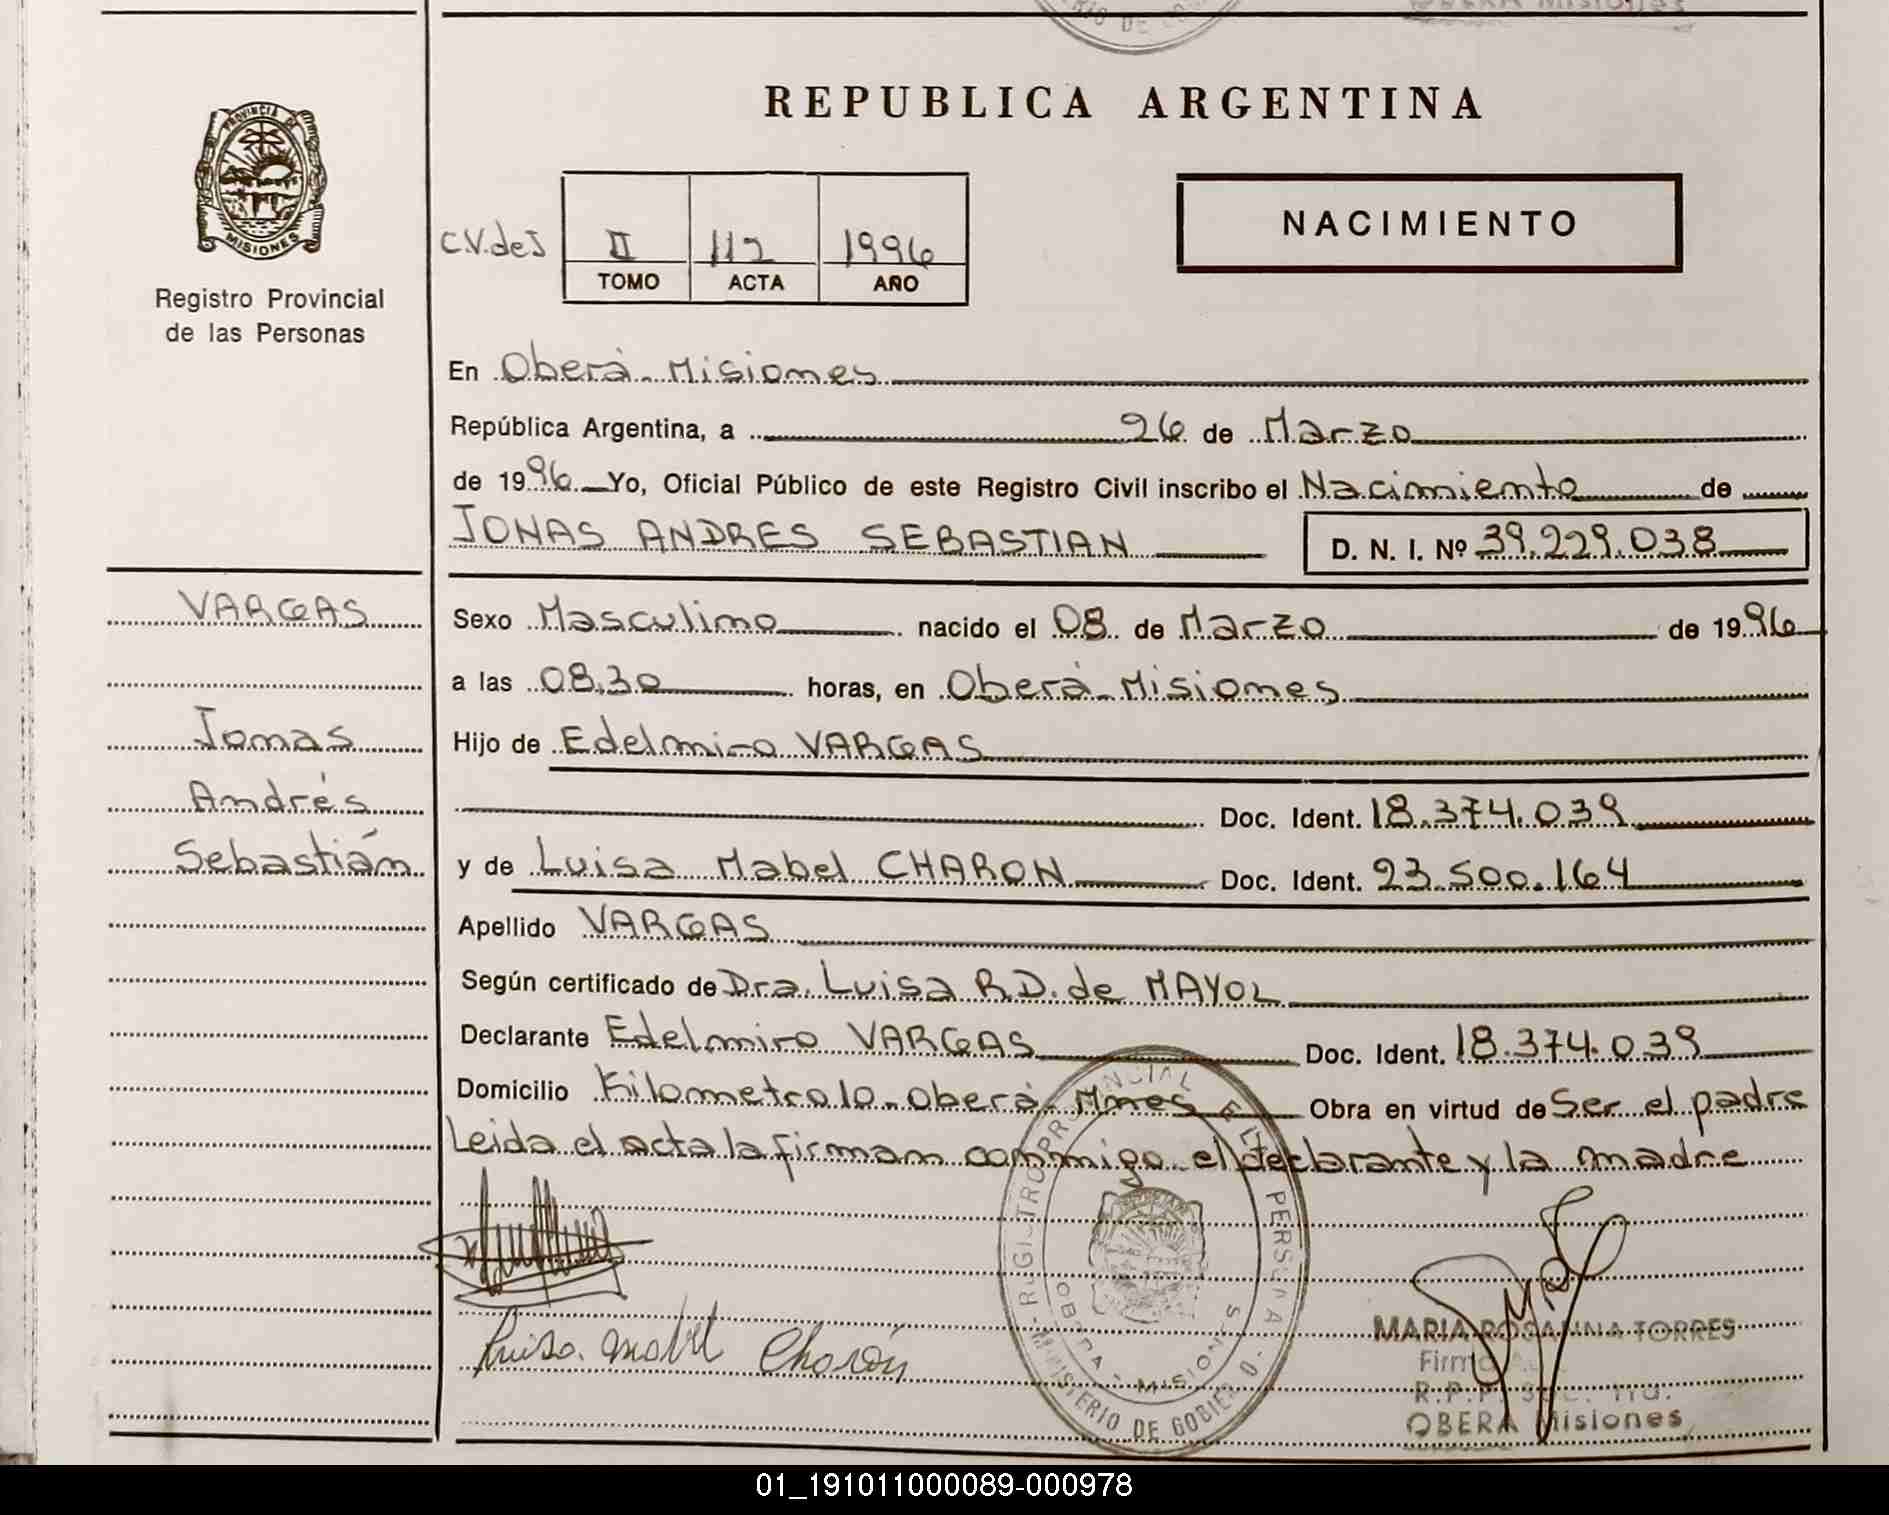 OBERA Misiones
REPUBLICA ARGENTINA
PROVINCIA DE
MISIONES
Registro Provincial
de las Personas
C.V.deJ
II 112 1996
TOMO ACTA AÑO
NACIMIENTO
En Oberá - Misiones
República Argentina, a 26 de Marzo
de 1996 Yo, Oficial Público de este Registro Civil inscribo el Nacimiento de
JONAS ANDRES SEBASTIAN D. N. I. Nº 39.229.038
VARGAS
Jonas
Andrés
Sebastián
Sexo Masculino nacido el 08 de Marzo de 1996
a las 08,30 horas, en Oberá - Misiones
Hijo de Edelmiro VARGAS
Doc. Ident. 18.374.039
y de Luisa Mabel CHARON Doc. Ident. 23.500.164
Apellido VARGAS
Según certificado de Dra. Luisa R.D. de MAYOL
Declarante Edelmiro VARGAS Doc. Ident. 18.374.039
Domicilio Kilometro 10 - Oberá - Mnes Obra en virtud de Ser el padre
Leida el acta la firman conmigo el declarante y la madre
Luisa Mabel Charón
REGISTRO PROVINCIAL DE LAS PERSONAS
OBERA - MISIONES
MINISTERIO DE GOBIERNO
MARIA ROSANNA TORRES
OBERA Misiones
01_191011000089-000978